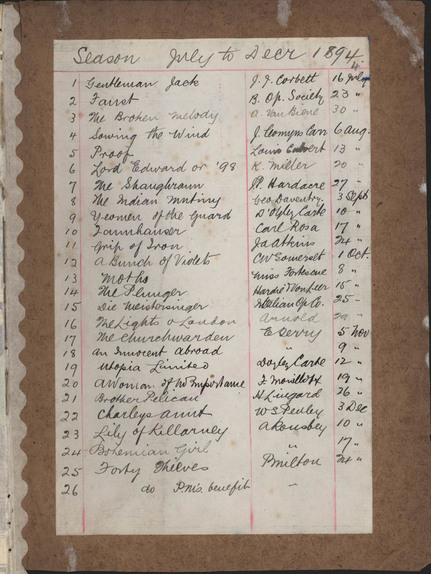 Season July to Decr 1894
1 Gentleman Jack J. J. Corbett 16 July
2 Faust B. Op. Society 23 "
3 The Broken Melody A. Van Biene 30 "
4 Sowing the Wind J. Comyns Carr 6 Aug.
5 Proof Louis Calvert 13 "
6 Lord Edward or '98 K. Miller 20 "
7 The Shaughraun J.P. Hardacre 27 "
8 The Indian Mutiny Geo Daventry 3 Sept
9 Yeomen of the Guard D'Oyly Carte 10 "
10 Tannhauser Carl Rosa 17 "
11 Grip of Iron Jd Atkins 24 "
12 A Bunch of Violets CW Somerset 1 Oct.
13 Moths Miss Fortescue 8 "
14 The Plunger 15 "
15 Die Meistersinger Op. Co. 25 "
16 The Lights o London Arnold "
17 The Churchwarden E Terry 5 Nov
18 An Innocent abroad 9 "
19 Utopia Limited Doyley Carte 12 "
20 A Woman of No Importance 19 "
21 Brother Pelican H Lingard 26 "
22 Charleys Aunt W S Penley 3 Dec
23 Lily of Killarney A Rousbey 10 "
24 Bohemian Girl " 17 "
25 Forty Thieves P. Milton 24 "
26 do P.M's. benefit "